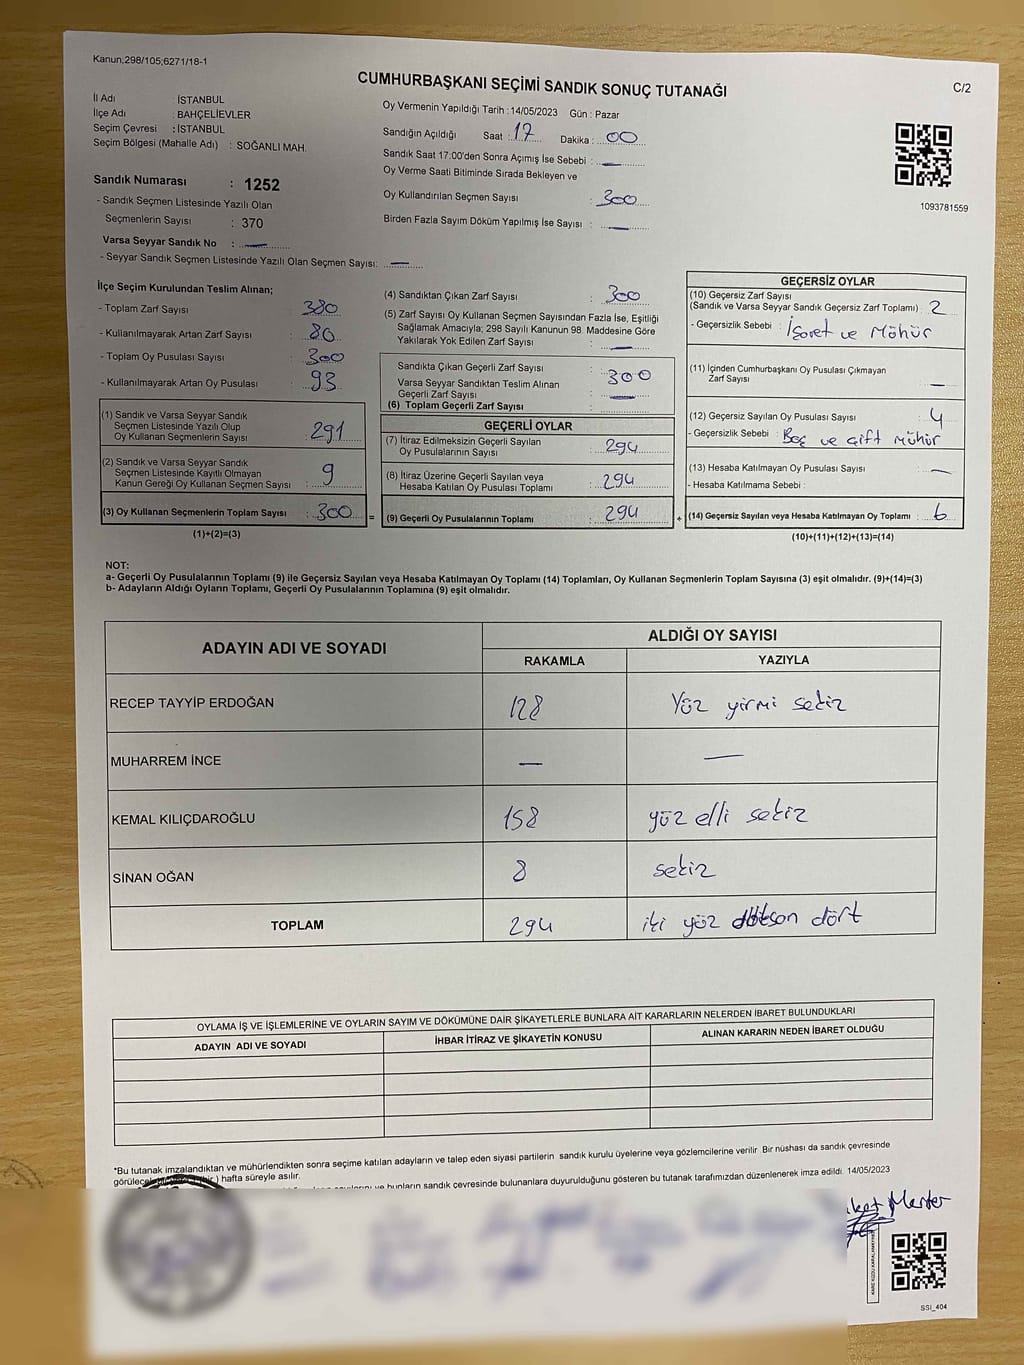 Kanun;298/105;6271/18-1
CUMHURBAŞKANI SEÇİMİ SANDIK SONUÇ TUTANAĞI
C/2
İl Adı : İSTANBUL
İlçe Adı : BAHÇELİEVLER
Seçim Çevresi : İSTANBUL
Seçim Bölgesi (Mahalle Adı) : SOĞANLI MAH.
Sandık Numarası : 1252
- Sandık Seçmen Listesinde Yazılı Olan
Seçmenlerin Sayısı : 370
Varsa Seyyar Sandık No : —
- Seyyar Sandık Seçmen Listesinde Yazılı Olan Seçmen Sayısı: —
Oy Vermenin Yapıldığı Tarih : 14/05/2023 Gün : Pazar
Sandığın Açıldığı Saat : 17 Dakika : 00
Sandık Saat 17:00'den Sonra Açımış İse Sebebi : —
Oy Verme Saati Bitiminde Sırada Bekleyen ve
Oy Kullandırılan Seçmen Sayısı : 300
Birden Fazla Sayım Döküm Yapılmış İse Sayısı : —
1093781559
İlçe Seçim Kurulundan Teslim Alınan;
- Toplam Zarf Sayısı : 380
- Kullanılmayarak Artan Zarf Sayısı : 80
- Toplam Oy Pusulası Sayısı : 300
- Kullanılmayarak Artan Oy Pusulası : 93
(1) Sandık ve Varsa Seyyar Sandık
Seçmen Listesinde Yazılı Olup
Oy Kullanan Seçmenlerin Sayısı : 291
(2) Sandık ve Varsa Seyyar Sandık
Seçmen Listesinde Kayıtlı Olmayan
Kanun Gereği Oy Kullanan Seçmen Sayısı : 9
(3) Oy Kullanan Seçmenlerin Toplam Sayısı : 300 =
(1)+(2)=(3)
(4) Sandıktan Çıkan Zarf Sayısı : 300
(5) Zarf Sayısı Oy Kullanan Seçmen Sayısından Fazla İse, Eşitliği
Sağlamak Amacıyla; 298 Sayılı Kanunun 98. Maddesine Göre
Yakılarak Yok Edilen Zarf Sayısı : —
Sandıkta Çıkan Geçerli Zarf Sayısı : 300
Varsa Seyyar Sandıktan Teslim Alınan
Geçerli Zarf Sayısı : —
(6) Toplam Geçerli Zarf Sayısı
GEÇERLİ OYLAR
(7) İtiraz Edilmeksizin Geçerli Sayılan
Oy Pusulalarının Sayısı : 294
(8) İtiraz Üzerine Geçerli Sayılan veya
Hesaba Katılan Oy Pusulası Toplamı : 294
(9) Geçerli Oy Pusulalarının Toplamı : 294 +
GEÇERSİZ OYLAR
(10) Geçersiz Zarf Sayısı
(Sandık ve Varsa Seyyar Sandık Geçersiz Zarf Toplamı) : 2
- Geçersizlik Sebebi : İşaret ve Mühür
(11) İçinden Cumhurbaşkanı Oy Pusulası Çıkmayan
Zarf Sayısı : —
(12) Geçersiz Sayılan Oy Pusulası Sayısı : 4
- Geçersizlik Sebebi : Boş ve çift mühür
(13) Hesaba Katılmayan Oy Pusulası Sayısı : —
- Hesaba Katılmama Sebebi :
(14) Geçersiz Sayılan veya Hesaba Katılmayan Oy Toplamı : 6
(10)+(11)+(12)+(13)=(14)
NOT:
a- Geçerli Oy Pusulalarının Toplamı (9) ile Geçersiz Sayılan veya Hesaba Katılmayan Oy Toplamı (14) Toplamları, Oy Kullanan Seçmenlerin Toplam Sayısına (3) eşit olmalıdır. (9)+(14)=(3)
b- Adayların Aldığı Oyların Toplamı, Geçerli Oy Pusulalarının Toplamına (9) eşit olmalıdır.
ADAYIN ADI VE SOYADI
ALDIĞI OY SAYISI
RAKAMLA YAZIYLA
RECEP TAYYİP ERDOĞAN 128 Yüz yirmi sekiz
MUHARREM İNCE — —
KEMAL KILIÇDAROĞLU 158 yüz elli sekiz
SİNAN OĞAN 8 sekiz
TOPLAM 294 iki yüz doksan dört
OYLAMA İŞ VE İŞLEMLERİNE VE OYLARIN SAYIM VE DÖKÜMÜNE DAİR ŞİKAYETLERLE BUNLARA AİT KARARLARIN NELERDEN İBARET BULUNDUKLARI
ADAYIN ADI VE SOYADI İHBAR İTİRAZ VE ŞİKAYETİN KONUSU ALINAN KARARIN NEDEN İBARET OLDUĞU
*Bu tutanak imzalandıktan ve mühürlendikten sonra seçime katılan adayların ve talep eden siyasi partilerin sandık kurulu üyelerine veya gözlemcilerine verilir Bir nüshası da sandık çevresinde
hafta süreyle asılır.
bunların sandık çevresinde bulunanlara duyurulduğunu gösteren bu tutanak tarafımızdan düzenlenerek imza edildi. 14/05/2023
SSI_404